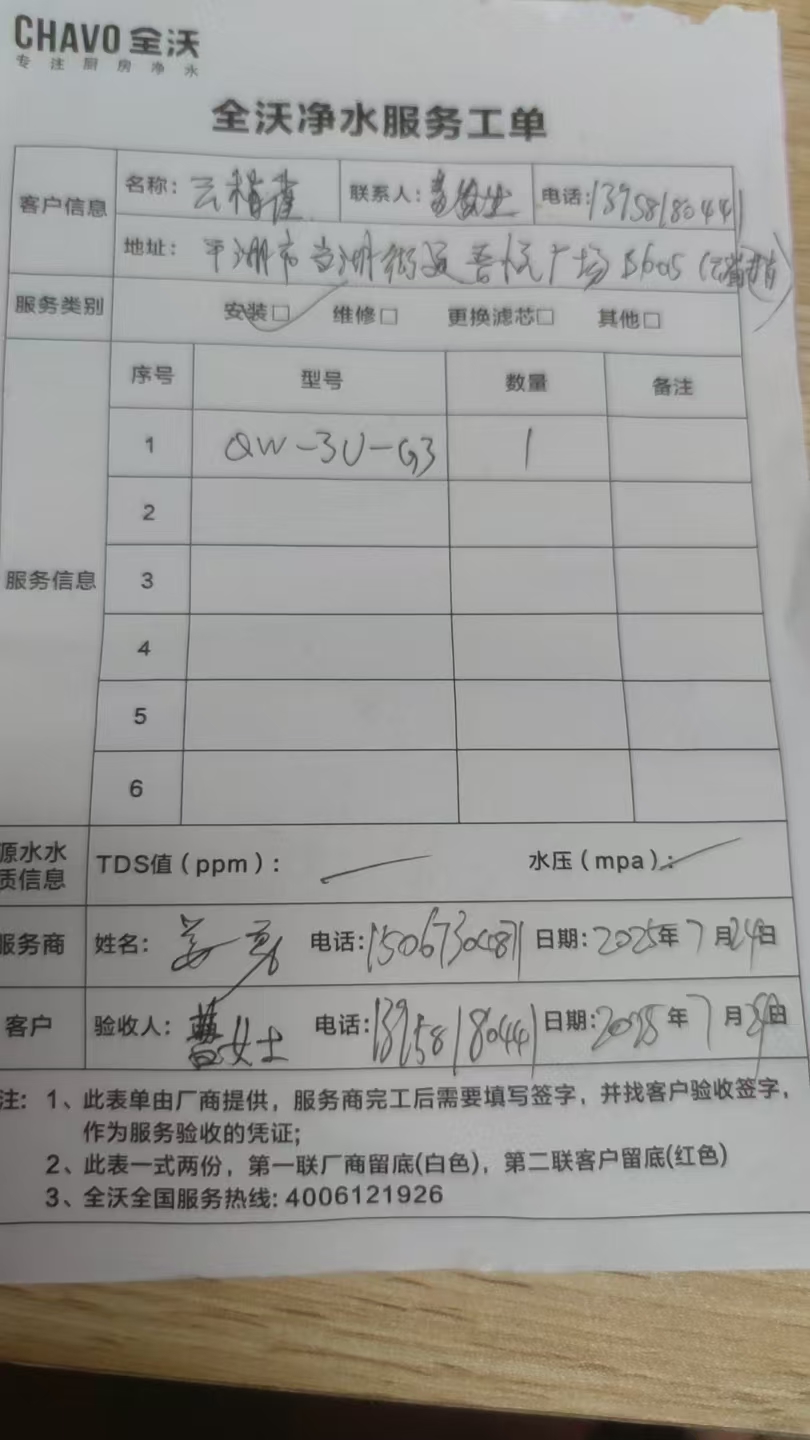 CHAVO 全沃
专注厨房净水
全沃净水服务工单
客户信息 名称: 云 联系人: 女士 电话: 13958180441
地址: 平湖市当湖街道吾悦广场B605
服务类别 安装□ 维修□ 更换滤芯□ 其他□
序号 型号 数量 备注
1 QW-3U-G3 1
2
服务信息 3
4
5
6
源水水质信息 TDS值(ppm): 水压(mpa):
服务商 姓名: 姜勇 电话: 日期: 2025年7月24日
客户 验收人: 曹女士 电话: 13958180441 日期: 2025年7月24日
注: 1、此表单由厂商提供，服务商完工后需要填写签字，并找客户验收签字，
作为服务验收的凭证;
2、此表一式两份，第一联厂商留底(白色)，第二联客户留底(红色)
3、全沃全国服务热线: 4006121926